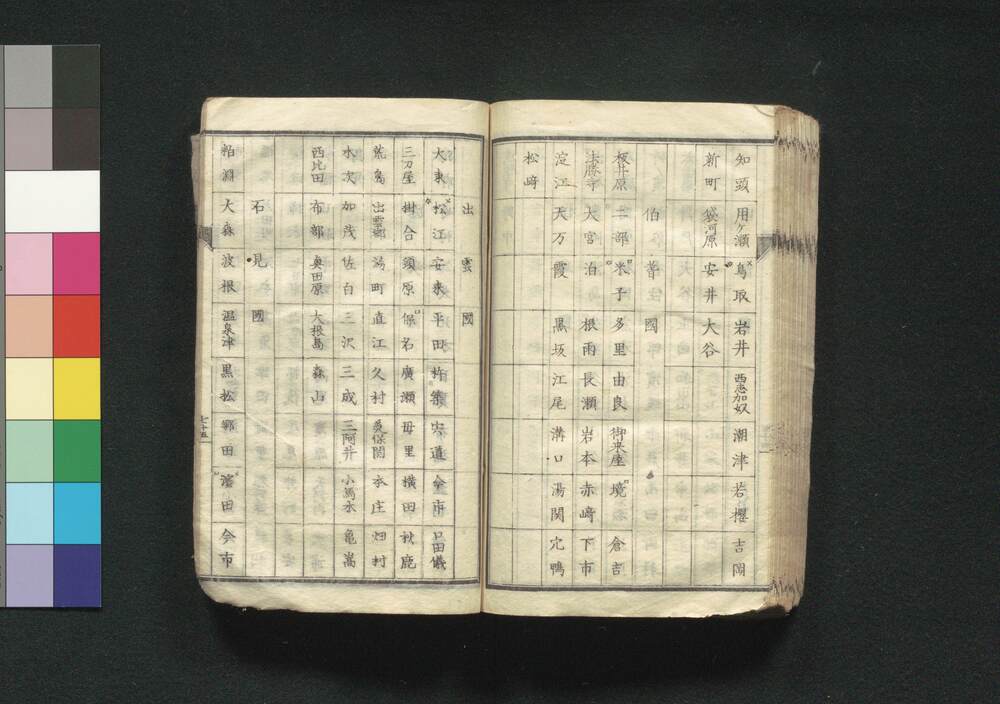 知頭 用ヶ瀬 鳥取 岩井 西恵加奴 潮津 若櫻 吉岡
新町 袋河原 安井 大谷
伯耆國
板井原 二部 米子 多里 由良 御来屋 境 倉吉
法勝寺 大宮 泊 根雨 長瀬 岩本 赤﨑 下市
淀江 天万 霞 黒坂 江尾 溝口 湯関 穴鴨
松﨑
出雲國
大東 松江 安来 平田 杵築 宍道 今市 口田儀
三刀屋 掛合 頓原 保名 廣瀬 母里 横田 秋鹿
荒島 出雲郷 湯町 直江 久村 美保関 本庄 畑村
水次 加茂 佐白 三沢 三成 三阿井 小馬木 亀嵩
西比田 布部 奥田原 大根島 森山
石見國
粕淵 大森 波根 温泉津 黒松 郷田 濱田 今市
七十五